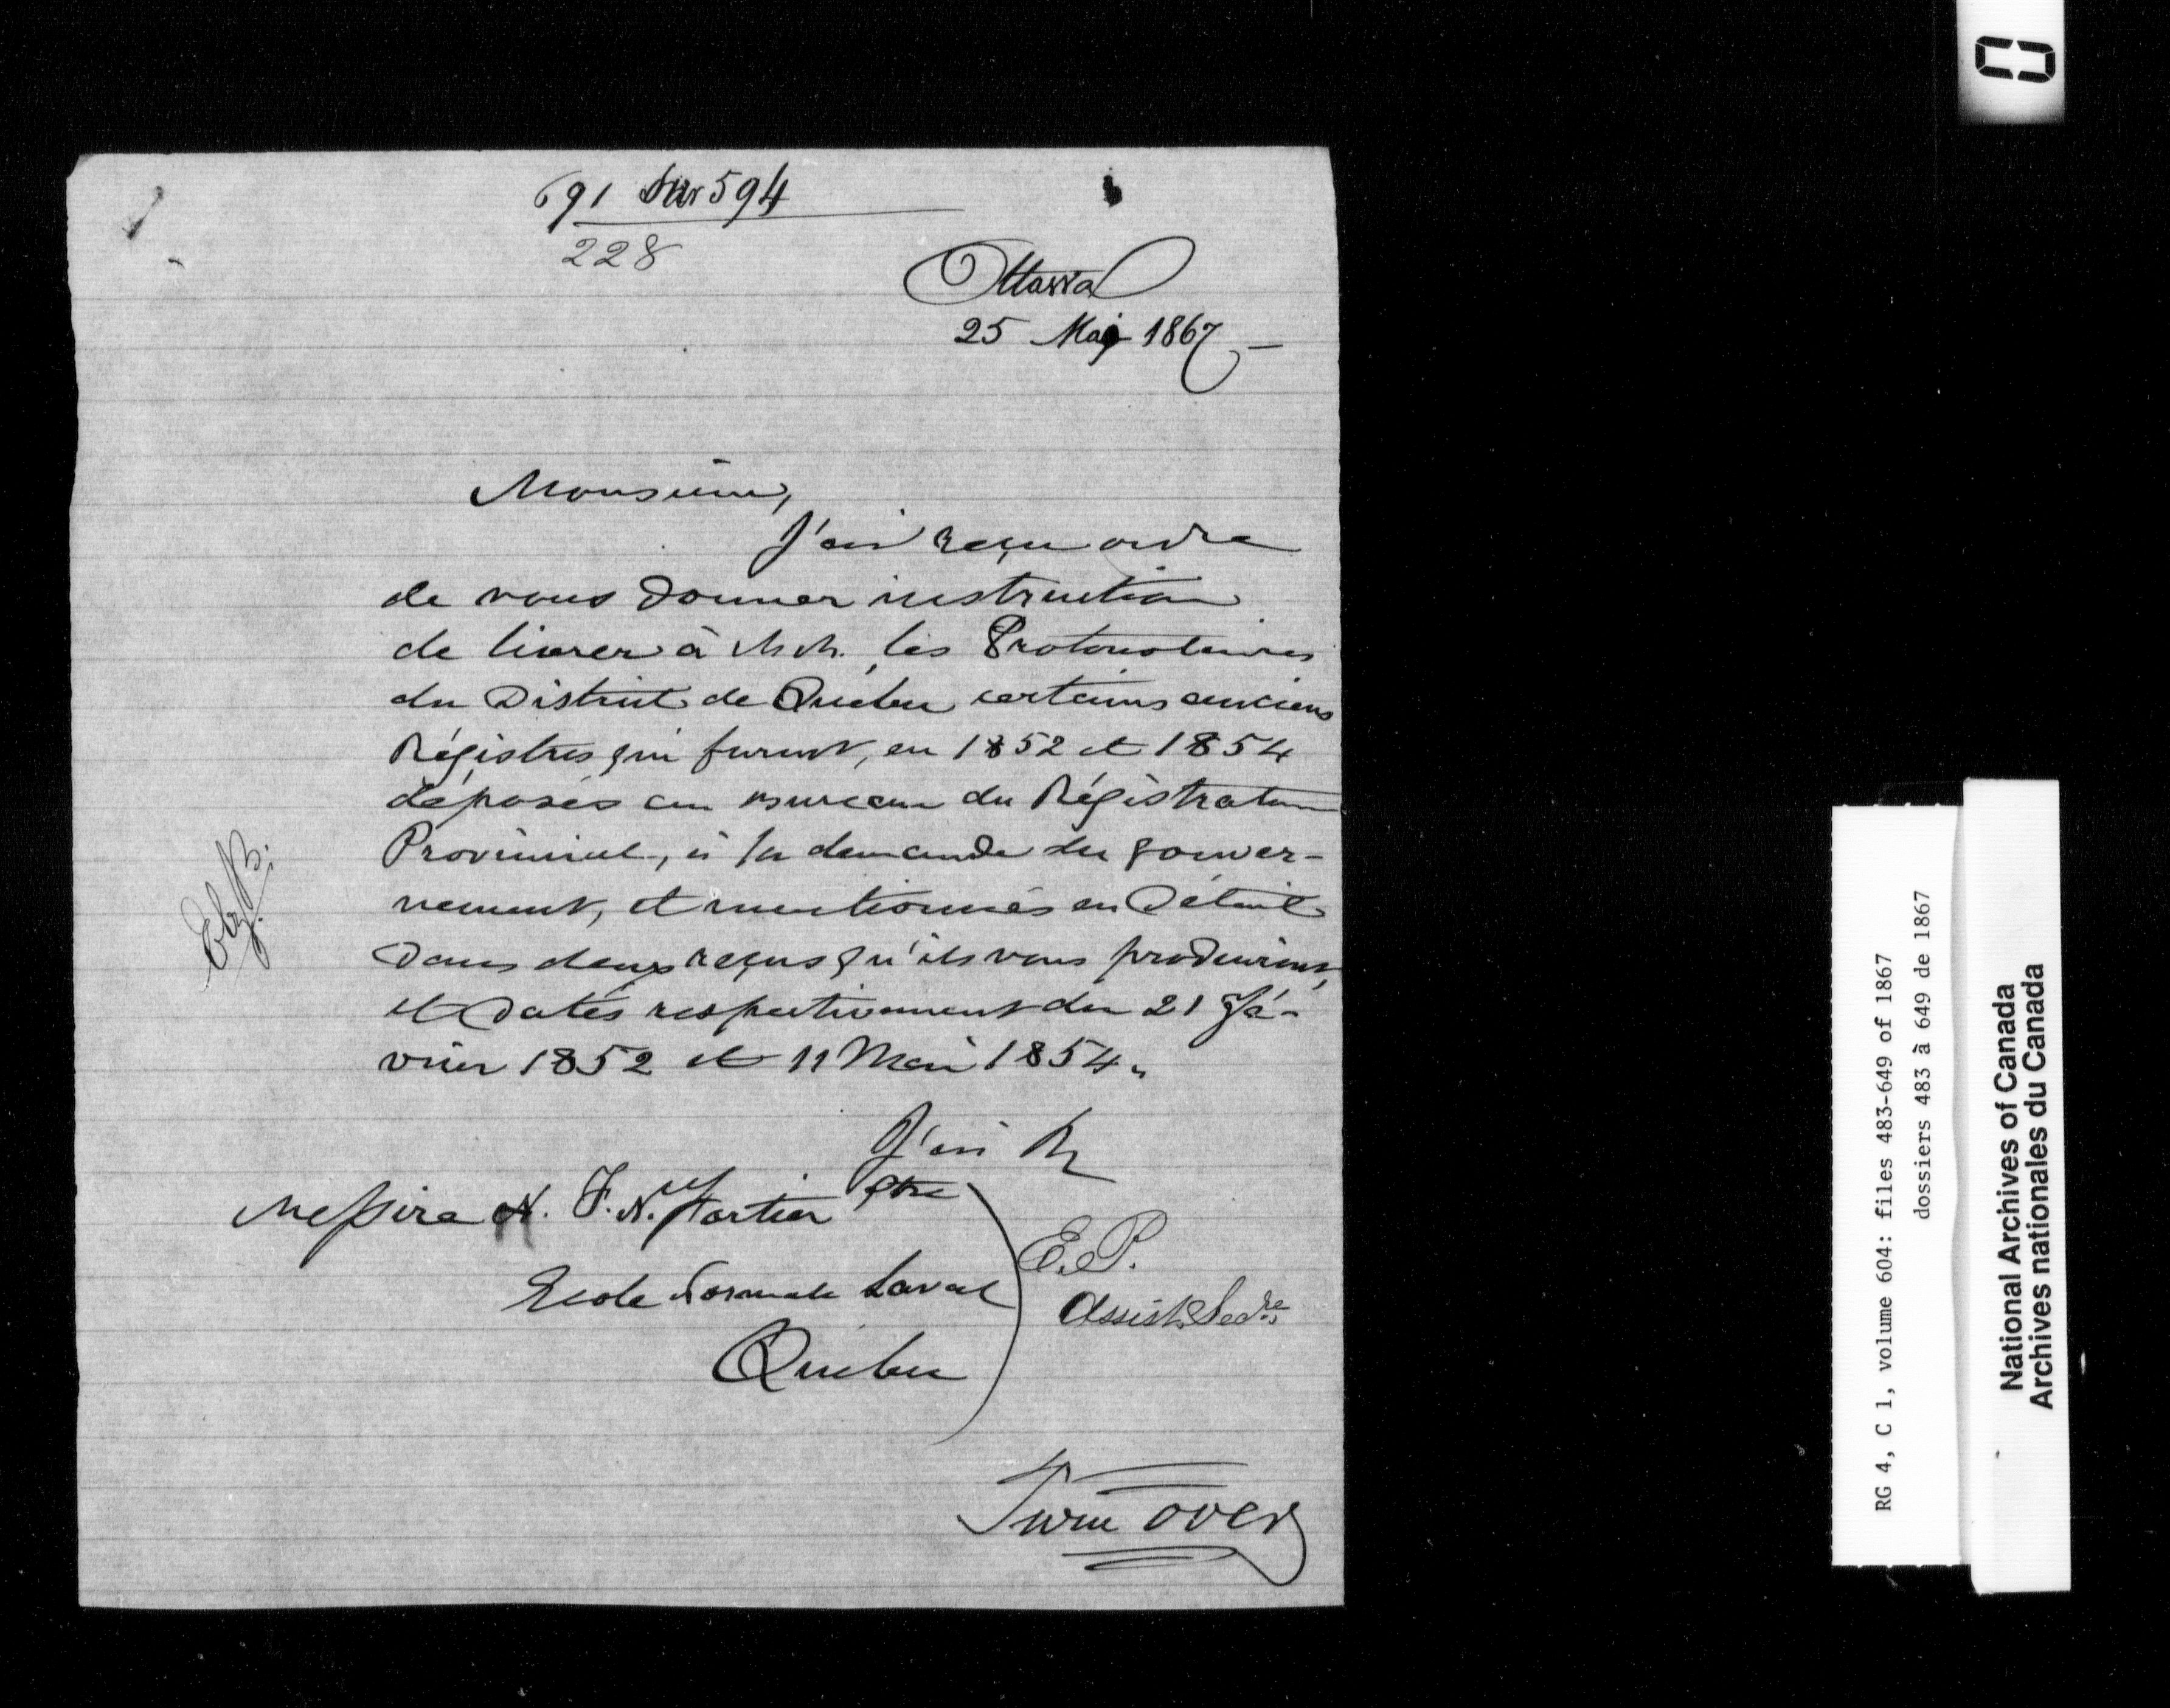 691 Sur 594
228
Ottawa
25 Mai 1867 -
Monsieur,
J'ai reçu ordre
de vous donner instruction
de livrer à MM. les Protonotaires
du District de Québec certains anciens
Régistres qui furent, en 1852 et 1854
déposés au bureau du Régistrateur
Provincial, à la demande du gouver-
nement, et mentionnés en détail
dans deux reçus qu'ils vous produiront,
et datés respectivement du 21 Fé-
vrier 1852 et 11 Mai 1854.
J'ai &c
Messire N. F. N. Fortier Ptre
E. P.
Ecole Normale Laval
Assist. Secre
Québec
Turn over
RG 4, C 1, volume 604: files 483-649 of 1867
dossiers 483 à 649 de 1867
National Archives of Canada
Archives nationales du Canada